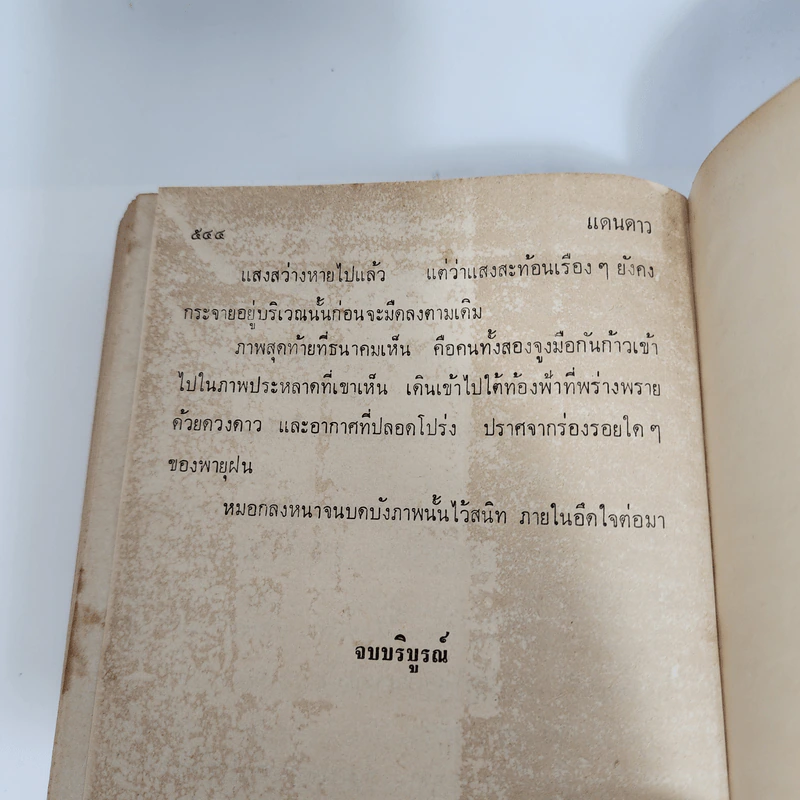 ๕๔๔
แดนดาว
แสงสว่างหายไปแล้ว แต่ว่าแสงสะท้อนเรือง ๆ ยังคง
กระจายอยู่บริเวณนั้นก่อนจะมืดลงตามเดิม
ภาพสุดท้ายที่ธนาคมเห็น คือคนทั้งสองจูงมือกันก้าวเข้า
ไปในภาพประหลาดที่เขาเห็น เดินเข้าไปใต้ท้องฟ้าที่พร่างพราย
ด้วยดวงดาว และอากาศที่ปลอดโปร่ง ปราศจากร่องรอยใด ๆ
ของพายุฝน
หมอกลงหนาจนบดบังภาพนั้นไว้สนิท ภายในอึดใจต่อมา
จบบริบูรณ์